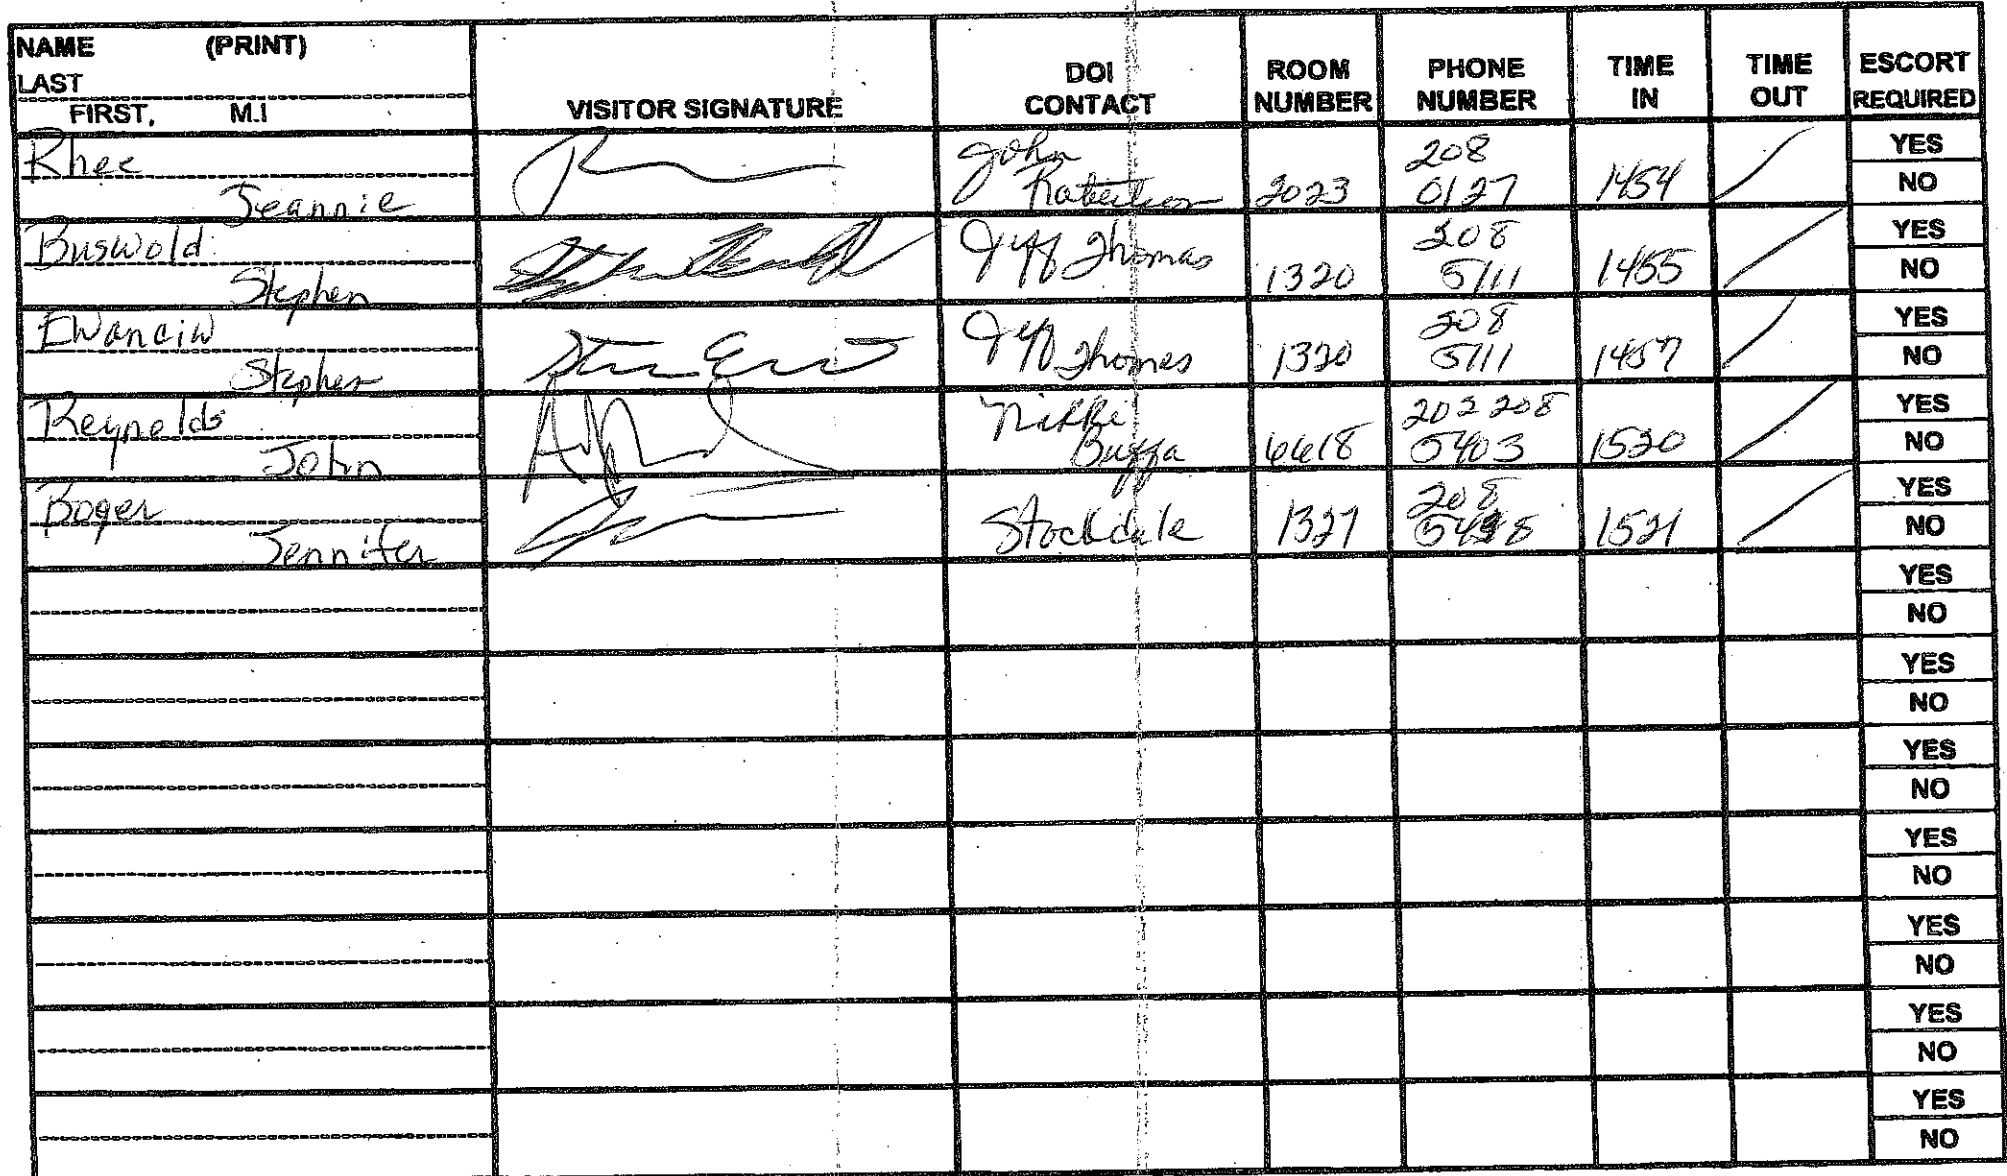 NAME (PRINT)
LAST
FIRST, M.I
VISITOR SIGNATURE
DOI
CONTACT
ROOM
NUMBER
PHONE
NUMBER
TIME
IN
TIME
OUT
ESCORT
REQUIRED
Rhee
Jeannie
John
Robertson
2023
208
0127
1454
YES
NO
Buswold
Stephen
Jeff Thomas
1320
208
5111
1455
YES
NO
Ewanciw
Stephen
Jeff Thomas
1320
208
5111
1457
YES
NO
Reynolds
John
Nikki
Buffa
6618
202 208
5403
1520
YES
NO
Boger
Jennifer
Stockdale
1327
208
1521
YES
NO
YES
NO
YES
NO
YES
NO
YES
NO
YES
NO
YES
NO
YES
NO